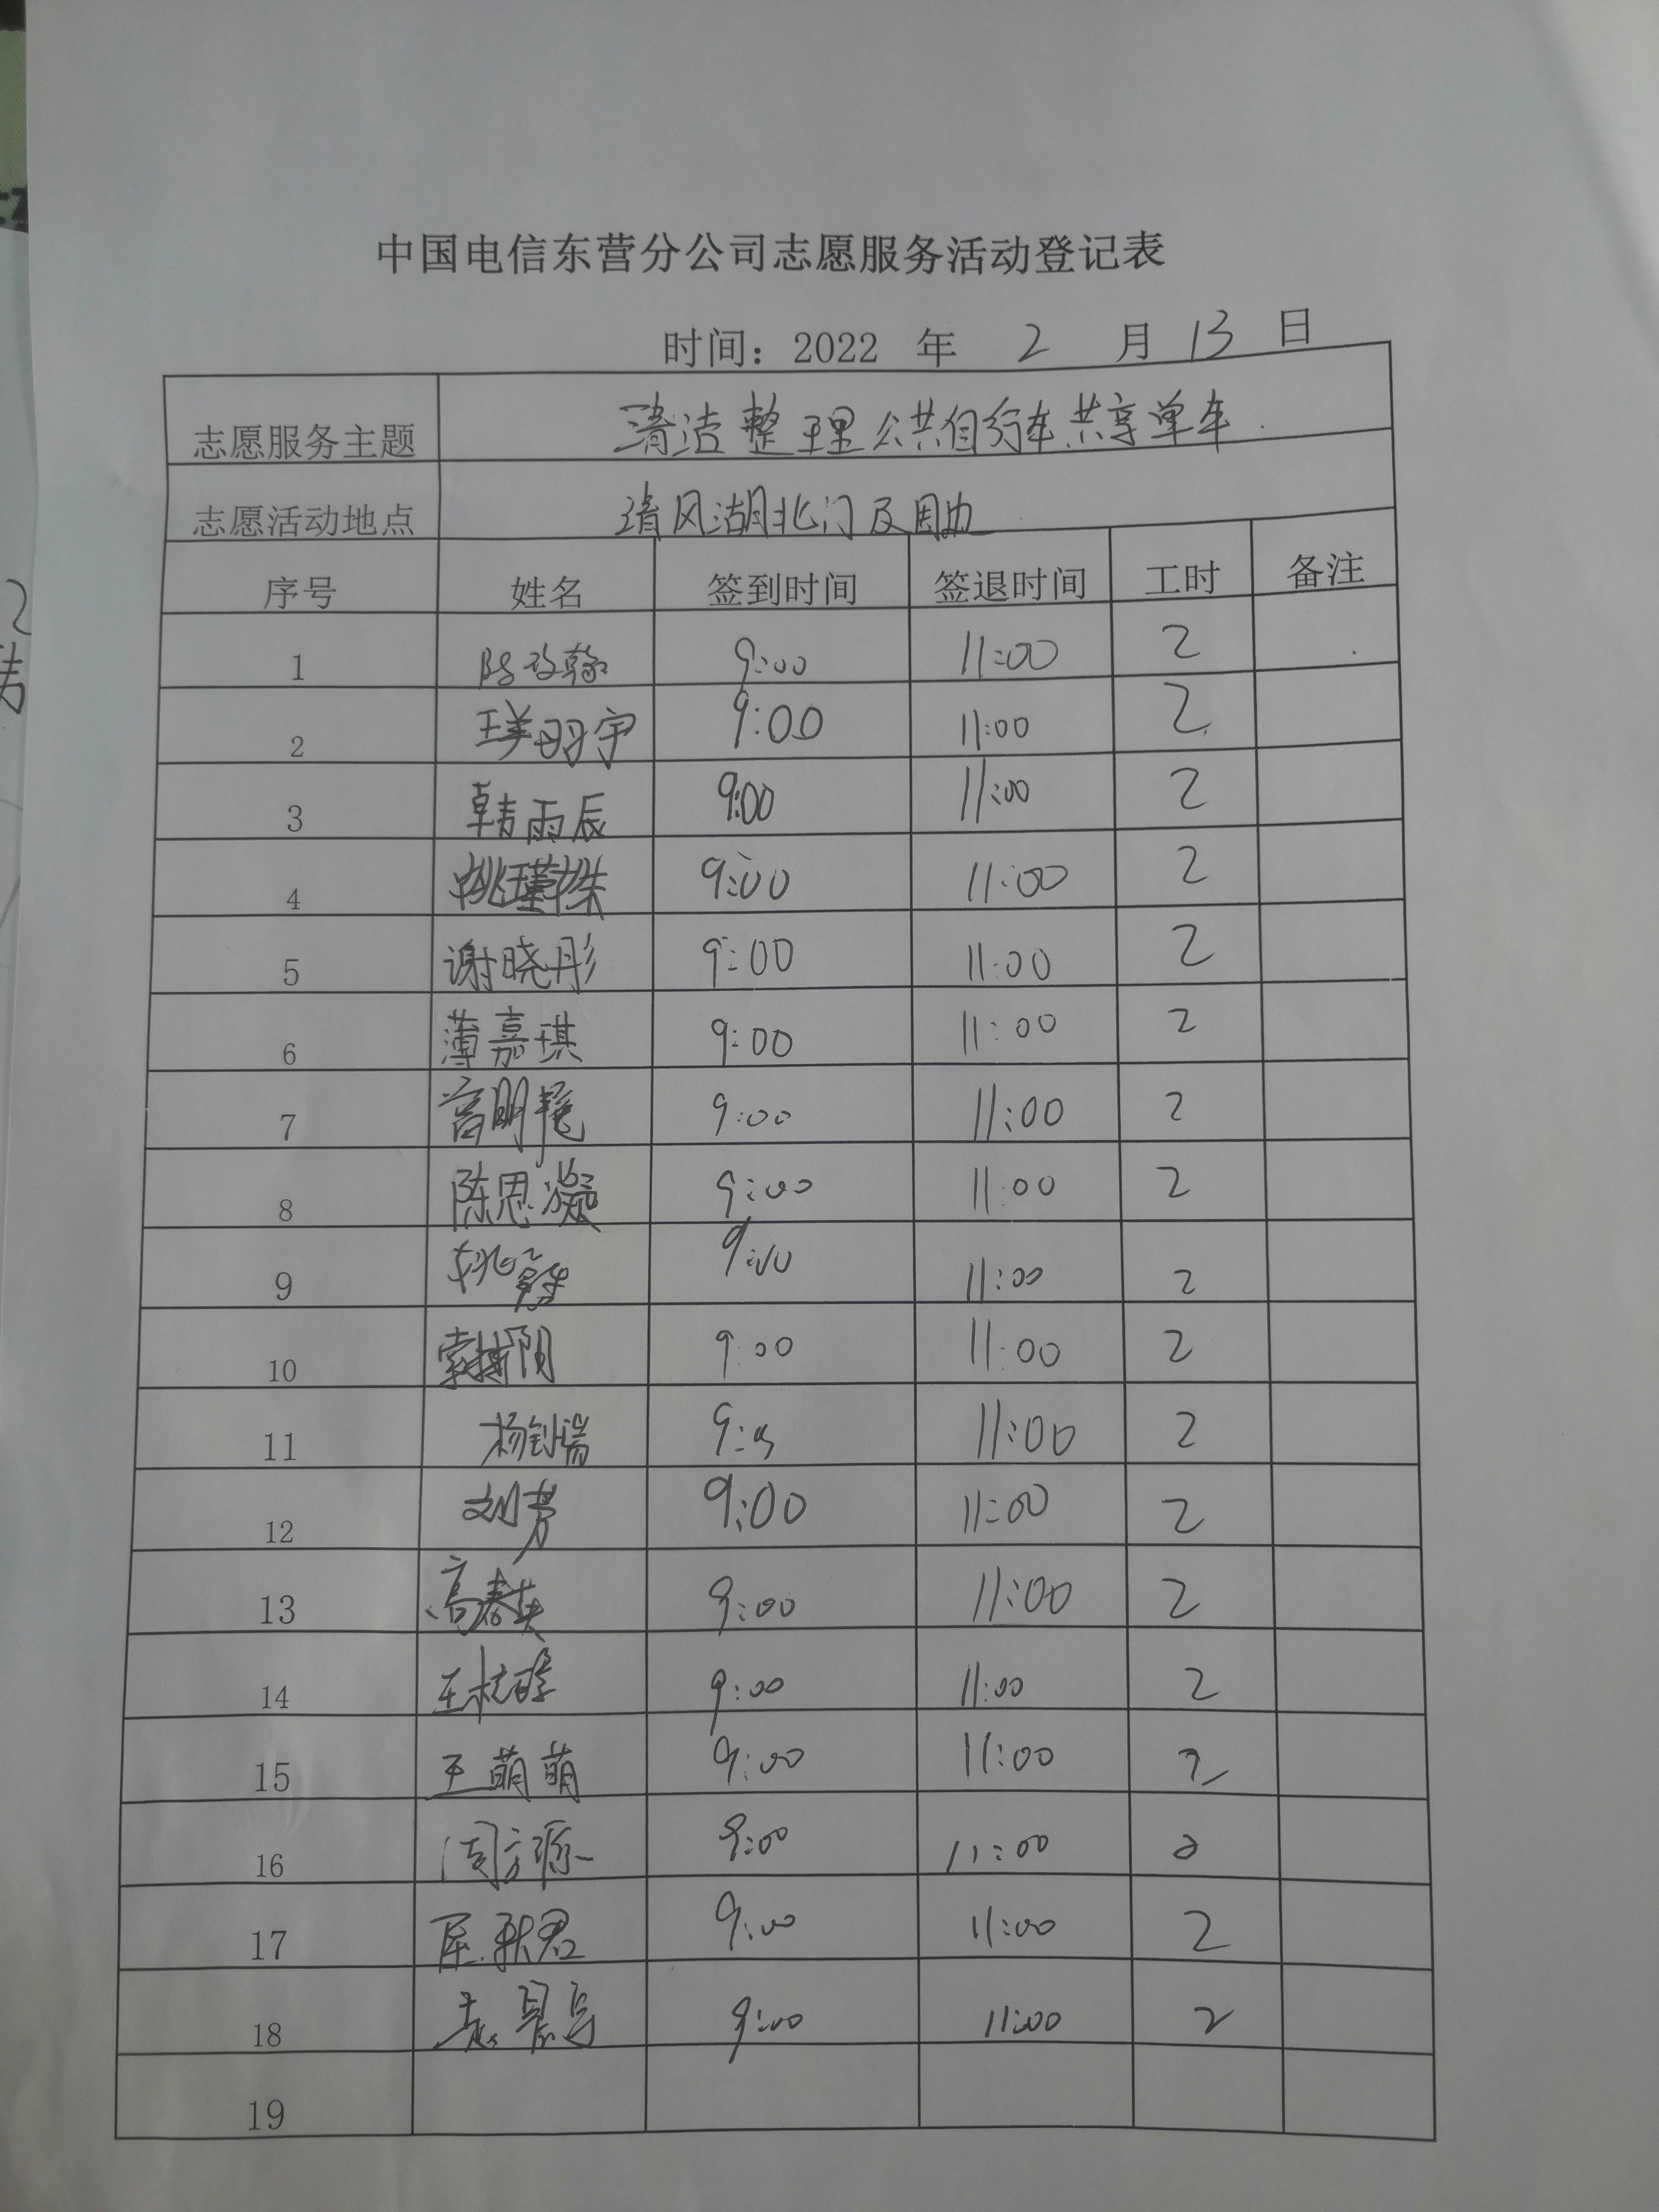 中国电信东营分公司志愿服务活动登记表
时间：2022 年 2 月 13 日
志愿服务主题 清洁整理公共自行车共享单车.
志愿活动地点 清风湖北门及周边
序号 姓名 签到时间 签退时间 工时 备注
1 9:00 11:00 2
2 9:00 11:00 2
3 韩雨辰 9:00 11:00 2
4 9:00 11:00 2
5 谢晓彤 9:00 11:00 2
6 薄嘉琪 9:00 11:00 2
7 9:00 11:00 2
8 陈思凝 9:00 11:00 2
9 9:00 11:00 2
10 9:00 11:00 2
11 9:00 11:00 2
12 刘芳 9:00 11:00 2
13 高春英 9:00 11:00 2
14 9:00 11:00 2
15 王萌萌 9:00 11:00 2
16 周方源 9:00 11:00 2
17 9:00 11:00 2
18 9:00 11:00 2
19